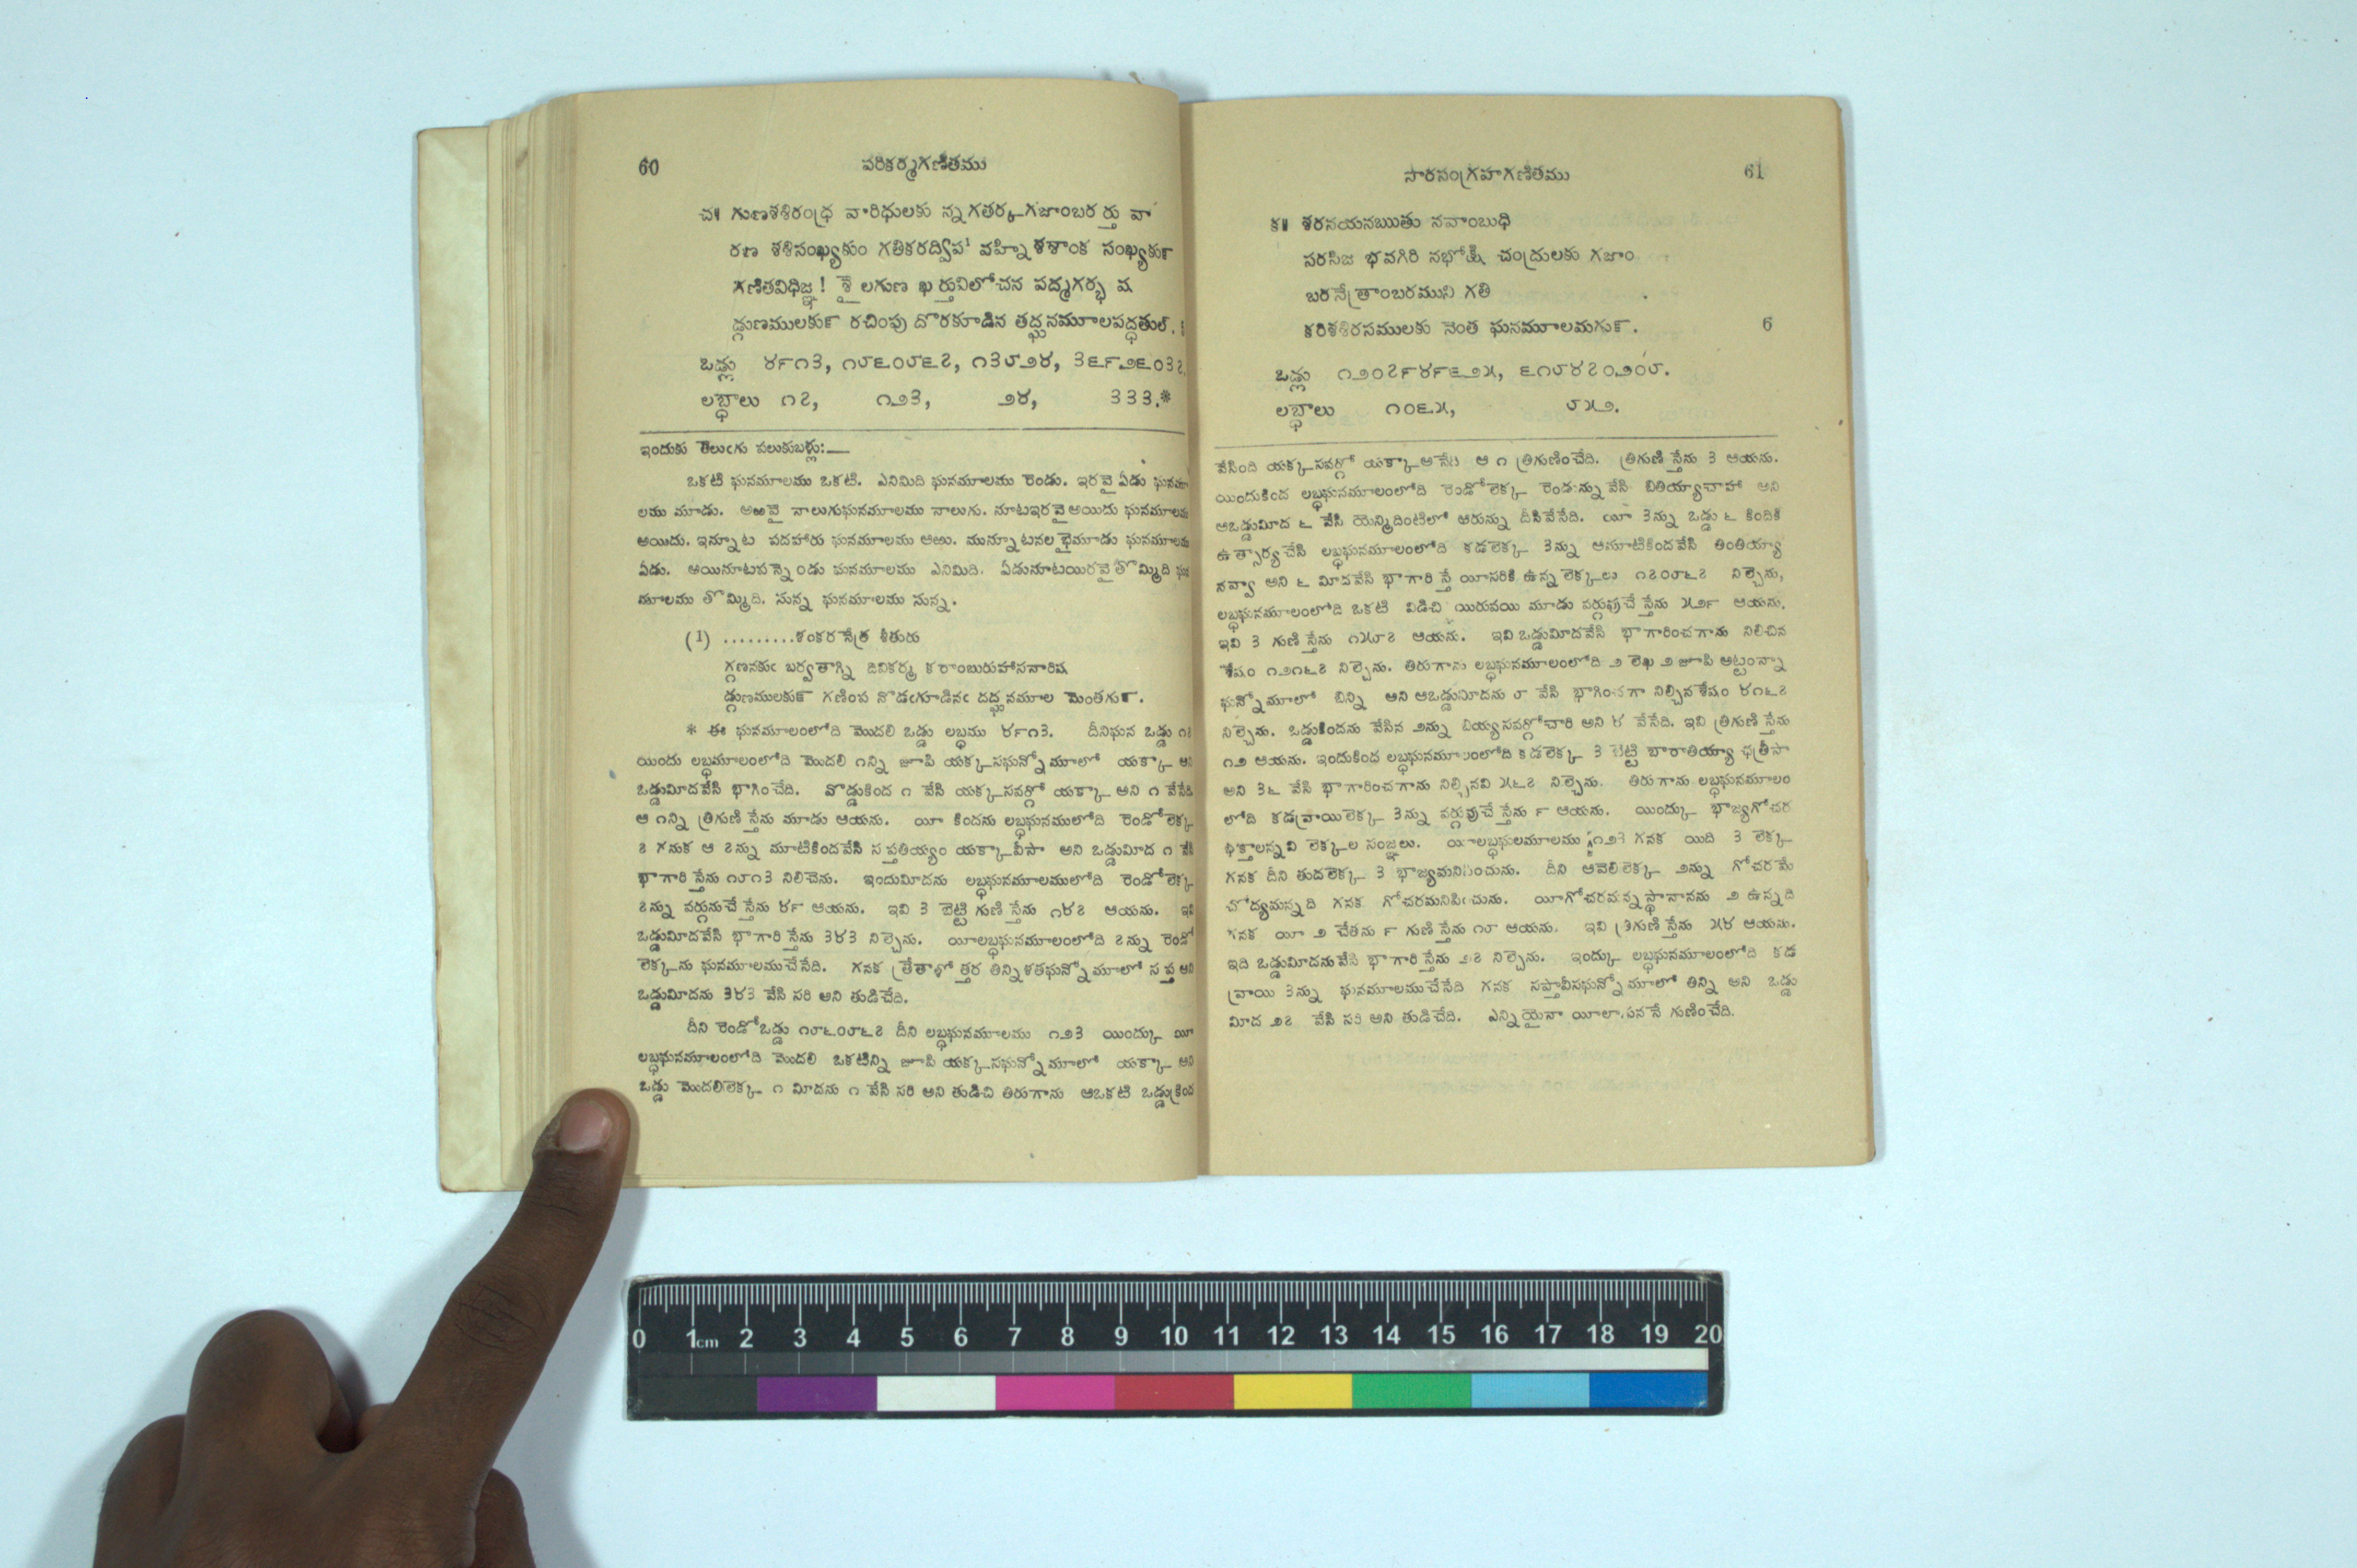 60 పరికర్మగణితము
చ॥ గుణశశిరంధ్ర వారిధులకు న్నగతర్క గజాంబర ర్తు వా
రణ శశిసంఖ్యకుం గతికరద్విప¹ వహ్ని శశాంక సంఖ్యకుఁ
గణితవిధిజ్ఞ! శైలగుణ ఖర్తువిలోచన పద్మగర్భ ష
డ్గుణములకుఁ రచింపు దొరకూడిన తద్ఘనమూలపద్ధతుల్.
ఒడ్లు ౪౯౧౩, ౧౮౬౦౮౬౭, ౧౩౮౨౪, ౩౬౯౨౬౦౩౭.
లబ్ధాలు ౧౭, ౧౨౩, ౨౪, ౩౩౩.*
ఇందుకు తెలుఁగు పలుకుబళ్లు:—
ఒకటి ఘనమూలము ఒకటి. ఎనిమిది ఘనమూలము రెండు. ఇరవై ఏడు ఘనమూ
లము మూడు. అఱవై నాలుగుఘనమూలము నాలుగు. నూటఇరవై అయిదు ఘనమూలము
అయిదు. ఇన్నూట పదహారు ఘనమూలము ఆఱు. మున్నూటనలభైమూడు ఘనమూలము
ఏడు. అయినూటపన్నెండు ఘనమూలము ఎనిమిది. ఏడునూటయిరవైతొమ్మిది ఘన
మూలము తొమ్మిది. సున్న ఘనమూలము సున్న.
(1) .........శంకర నేత్ర శీతురు
గ్గణనకుఁ బర్వతాగ్ని దివికర్మ కరాంబురుహాసనారిష
డ్గుణములకుఁ గణింప నొడఁగూడినఁ దద్ఘనమూల మెంతగుఁ.
* ఈ ఘనమూలంలోది మొదలి ఒడ్డు లబ్ధము ౪౯౧౩. దీనిఘన ఒడ్డు ౧౭
యిందు లబ్ధమూలంలోది మొదలి ౧న్ని జూపి యక్కసఘన్నోమూలో యక్కా అని
ఒడ్డుమీదవేసి భాగించేది. వొడ్డుకింద ౧ వేసి యక్కసవర్గో యక్కా అని ౧ వేసేది
ఆ ౧న్ని త్రిగుణిస్తేను మూడు ఆయను. యీ కిందను లబ్ధఘనములోది రెండోలెక్క
౭ గనుక ఆ ౭న్ను మూటికిందవేసి సప్తతియ్యం యక్కావీసా అని ఒడ్డుమీద ౧ వేసి
భాగారిస్తేను ౧౮౧౩ నిలిచెను. ఇందుమీదను లబ్ధఘనమూలములోది రెండోలెక్క
౭న్ను వర్గునుచేస్తేను ౪౯ ఆయను. ఇవి ౩ బెట్టి గుణిస్తేను ౧౪౭ ఆయను. ఇవి
ఒడ్డుమీదవేసి భాగారిస్తేను ౩౪౩ నిల్చెను. యీలబ్ధఘనమూలంలోది ౭న్ను రెండో
లెక్కను ఘనమూలముచేసేది. గనక త్రేతాళోత్తర తిన్నిశతఘన్నోమూలో సప్త అని
ఒడ్డుమీదను ౩౪౩ వేసి సరి అని తుడిచేది.
దీని రెండోఒడ్డు ౧౮౬౦౮౬౭ దీని లబ్ధఘనమూలము ౧౨౩ యింద్కు యీ
లబ్ధఘనమూలంలోది మొదలి ఒకటిన్ని జూపి యక్కసఘన్నోమూలో యక్కా అని
ఒడ్డు మొదలిలెక్క ౧ మీదను ౧ వేసి సరి అని తుడిచి తిరుగాను ఆఒకటి ఒడ్డుక్రింద
సారసంగ్రహగణితము 61
క॥ శరనయనఋతు నవాంబుధి
సరసిజ భవగిరి నభోక్షి చంద్రులకు గజాం
బరనేత్రాంబరముని గతి
కరిశశిరసములకు నెంత ఘనమూలమగుఁ. 6
ఒడ్లు ౧౨౦౭౯౪౯౬౨౫, ౬౧౮౪౭౦౨౦౮.
లబ్ధాలు ౧౦౬౫, ౮౫౨.
వేసింది యక్కసవర్గో యక్కా అనేటి ఆ ౧ త్రిగుణించేది. త్రిగుణిస్తేను ౩ ఆయను.
యిందుకింద లబ్ధఘనమూలంలోది రెండోలెక్క రెండున్ను వేసి బితియ్యాచాహా అని
ఆఒడ్డుమీద ౬ వేసి యెన్మిదింటిలో ఆరున్ను దీసివేసేది. యీ ౩న్ను ఒడ్డు ౬ కిందికి
ఉత్సార్యచేసి లబ్ధఘనమూలంలోది కడలెక్క ౩న్ను ఆనూటికిందవేసి తింతియ్యా
నవ్వా అని ౬ మీదవేసి భాగారిస్తే యీసరికి ఉన్నలెక్కలు ౧౭౦౮౬౭ నిల్చెను,
లబ్ధఘనమూలంలోది ఒకటి విడిచి యిరువయి మూడు వర్గువుచేస్తేను ౫౨౯ ఆయను.
ఇవి ౩ గుణిస్తేను ౧౫౮౭ ఆయను. ఇవి ఒడ్డుమీదవేసి భాగారించగాను నిలిచిన
శేషం ౧౨౧౬౭ నిల్చెను. తిరుగాను లబ్ధఘనమూలంలోది ౨ లెఖ ౨ జూపి అట్టంన్నా
ఘన్నోమూలో బిన్ని అని ఆఒడ్డుమీదను ౮ వేసి భాగించగా నిల్చినశేషం ౪౧౬౭
నిల్చెను. ఒడ్డుకిందను వేసిన ౨న్ను బియ్యసవర్గోచారి అని ౪ వేసేది. ఇవి త్రిగుణిస్తేను
౧౨ ఆయను. ఇందుకింద లబ్ధఘనమూలంలోది కడలెక్క ౩ బెట్టి బారాతియ్యా ఛత్రీసా
అని ౩౬ వేసి భాగారించగాను నిల్చినవి ౫౬౭ నిల్చెను. తిరుగాను లబ్ధఘనమూలం
లోది కడవ్రాయిలెక్క ౩న్ను వర్గువుచేస్తేను ౯ ఆయను. యింద్కు భాజ్యగోచర
భిక్తాలన్నవి లెక్కల సంజ్ఞలు. యీలబ్ధఘలమూలము ౧౨౩ గనక యిది ౩ లెక్క
గనక దీని తుదలెక్క ౩ భాజ్యమనిపించును. దీని ఆవెలిలెక్క ౨న్ను గోచరమే
చోద్యమన్నది గనక గోచరమనిపించును. యీగోచరమన్నస్థానానను ౨ ఉన్నది
గనక యీ ౨ చేతను ౯ గుణిస్తేను ౧౮ ఆయను. ఇవి త్రిగుణిస్తేను ౫౪ ఆయను.
ఇది ఒడ్డుమీదనువేసి భాగారిస్తేను ౨౭ నిల్చెను. ఇంద్కు లబ్ధఘనమూలంలోది కడ
వ్రాయి ౩న్ను ఘనమూలముచేసేది గనక సప్తావీసఘన్నోమూలో తిన్ని అని ఒడ్డు
మీద ౨౭ వేసి సరి అని తుడిచేది. ఎన్నియైనా యీలాగనే గుణించేది.
0 1cm 2 3 4 5 6 7 8 9 10 11 12 13 14 15 16 17 18 19 20